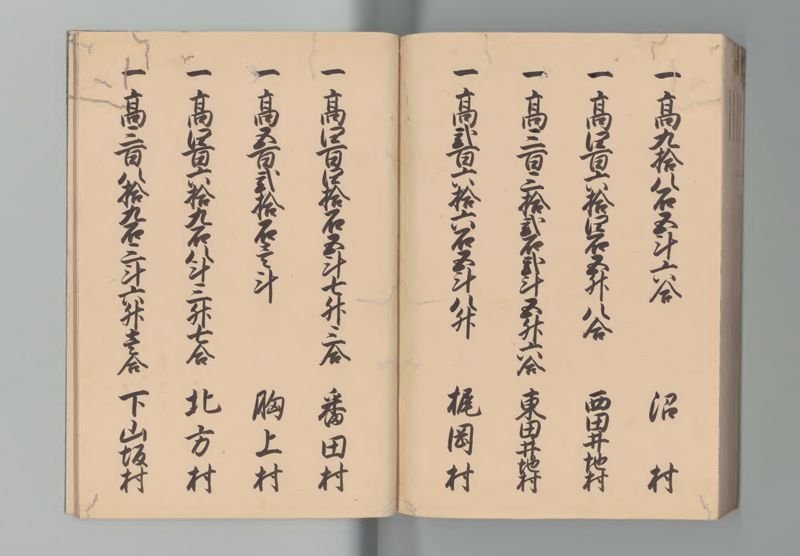 一高九拾八石五斗六合 沼村
一高四百六拾四石五升八合 西田井地村
一高三百三拾弐石弐斗五升六合 東田井地村
一高弐百六拾六石五斗八升 梶岡村
一高四百四拾石五斗七升三合 番田村
一高五百弐拾石壱斗 胸上村
一高四百六拾九石八斗三升七合 北方村
一高三百八拾九石三斗六升壱合 下山坂村